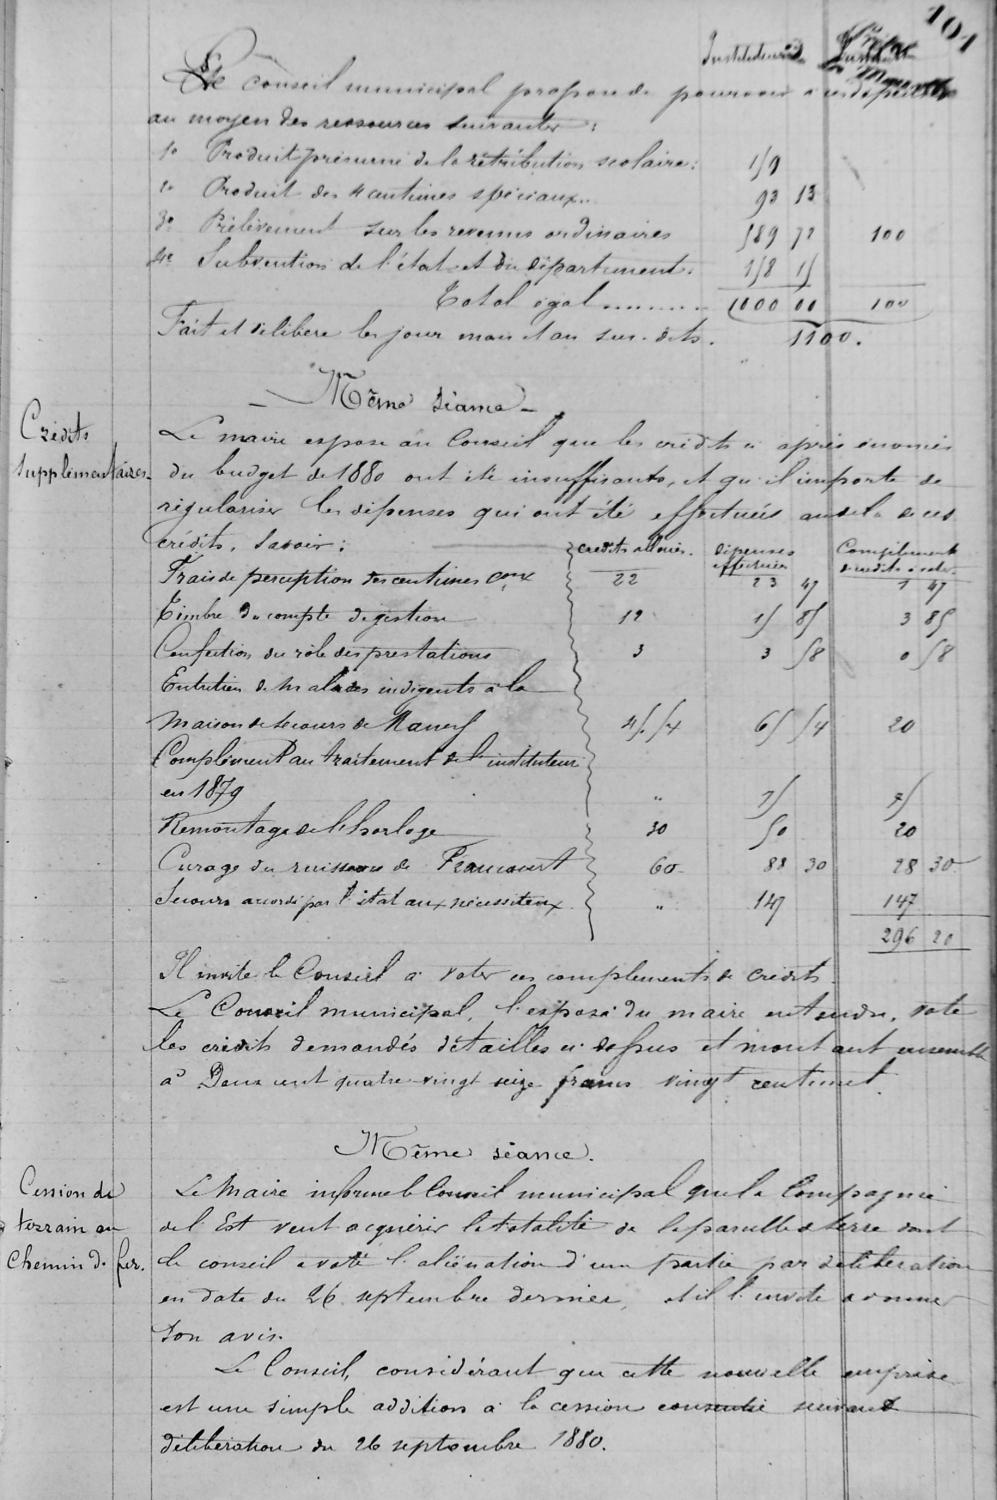 101
Instituteur
Le Conseil municipal propose de pourvoir à ces dépenses
au moyen des ressources suivantes :
1º Produit présumé de la rétribution scolaire : 159
2º Produit des 4 centimes spéciaux.. 93 13
3º Prélèvement sur les revenus ordinaires 589 72 100
4º Subvention de l'état et du département. 158 15
Total égal ......... 1000 00 100
Fait et délibéré les jour mois et an sus-dits. 1100.
Même séance
Crédits
supplémentaires.
Le maire expose au Conseil que les crédits ci après énoncés
du budget de 1880 ont été insuffisants, et qu'il importe de
régulariser les dépenses qui ont été effectuées audela de ces
crédits. Savoir : crédits alloués. dépenses effectuées Complément de crédits à voter
Frais de perception des centimes caux 22 23 47 1 47
Timbre du compte de gestion 12 15 85 3 85
Confection du rôle des prestations 3 3 58 0 58
Entretien de malades indigents à la
maison de secours de 45.54 65 54 20
Complément au traitement de l'instituteur
en 1879 " 75 75
Remontage de l'horloge 30 50 20
Curage du ruisseau de Francourt 60 88 30 28 30
Secours accordé par l'état aux nécessiteux " 147 147
296 20
Il invite le Conseil à voter ces compléments de crédits
Le Conseil municipal, l'exposé du maire entendu, vote
les crédits demandés détaillés ci-dessus et montant ensemble
à Deux cent quatre-vingt seize francs vingt centimes.
Même séance.
Cession de
terrain au
chemin de fer.
Le Maire informe le Conseil municipal que la Compagnie
de l'Est veut acquérir la totalité de la parcelle de terre dont
le conseil a voté l'aliénation d'une partie par délibération
en date du 26 septembre dernier, et il l'invite à donner
son avis.
Le Conseil, considérant que cette nouvelle emprise
est une simple addition à la cession consentie suivant
délibération du 26 septembre 1880.